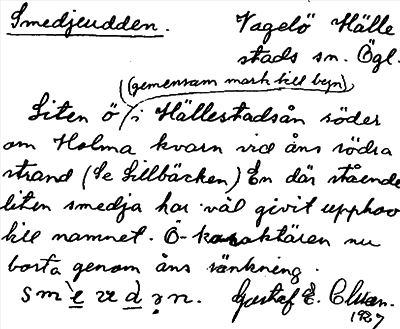 Smedjeudden. Vagelö Hälle
stads sn. Ögl.
(gemensam mark till byn)
Liten ö i Hällestadsån söder
om Holma kvarn vid åns södra
strand (Se Lillbäcken) En där stående
liten smedja har väl givit upphov
till namnet. Ö-karaktären nu
borta genom åns sänkning.
Gustaf E.
1927